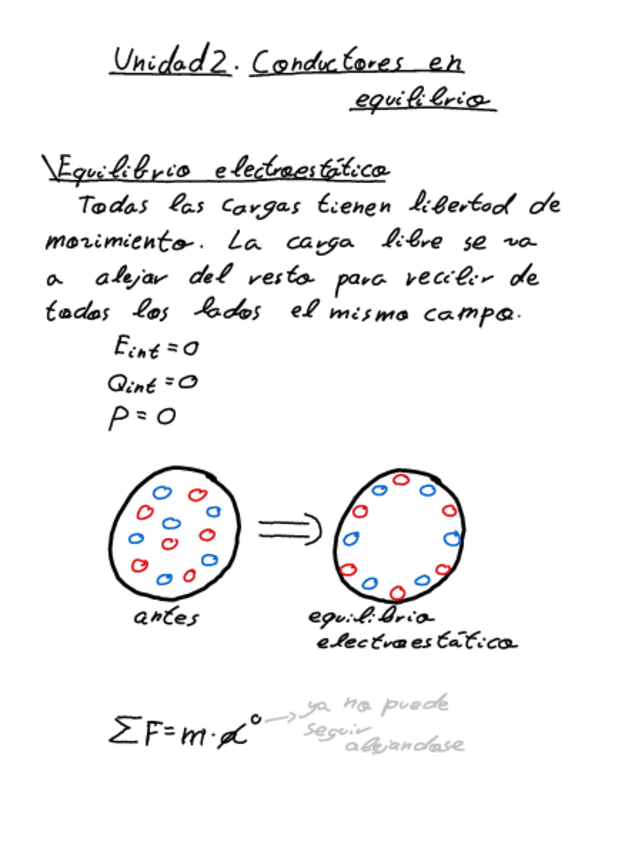 Unidad 2. Conductores en
equilibrio
\Equilibrio electroestático
Todas las cargas tienen libertad de
movimiento. La carga libre se va
a alejar del resto para recibir de
todos los lados el mismo campo.
Eint = 0
Qint = 0
ρ = 0
antes
equilibrio
electroestático
ΣF = m·a⁰ → ya no puede
seguir
alejandose